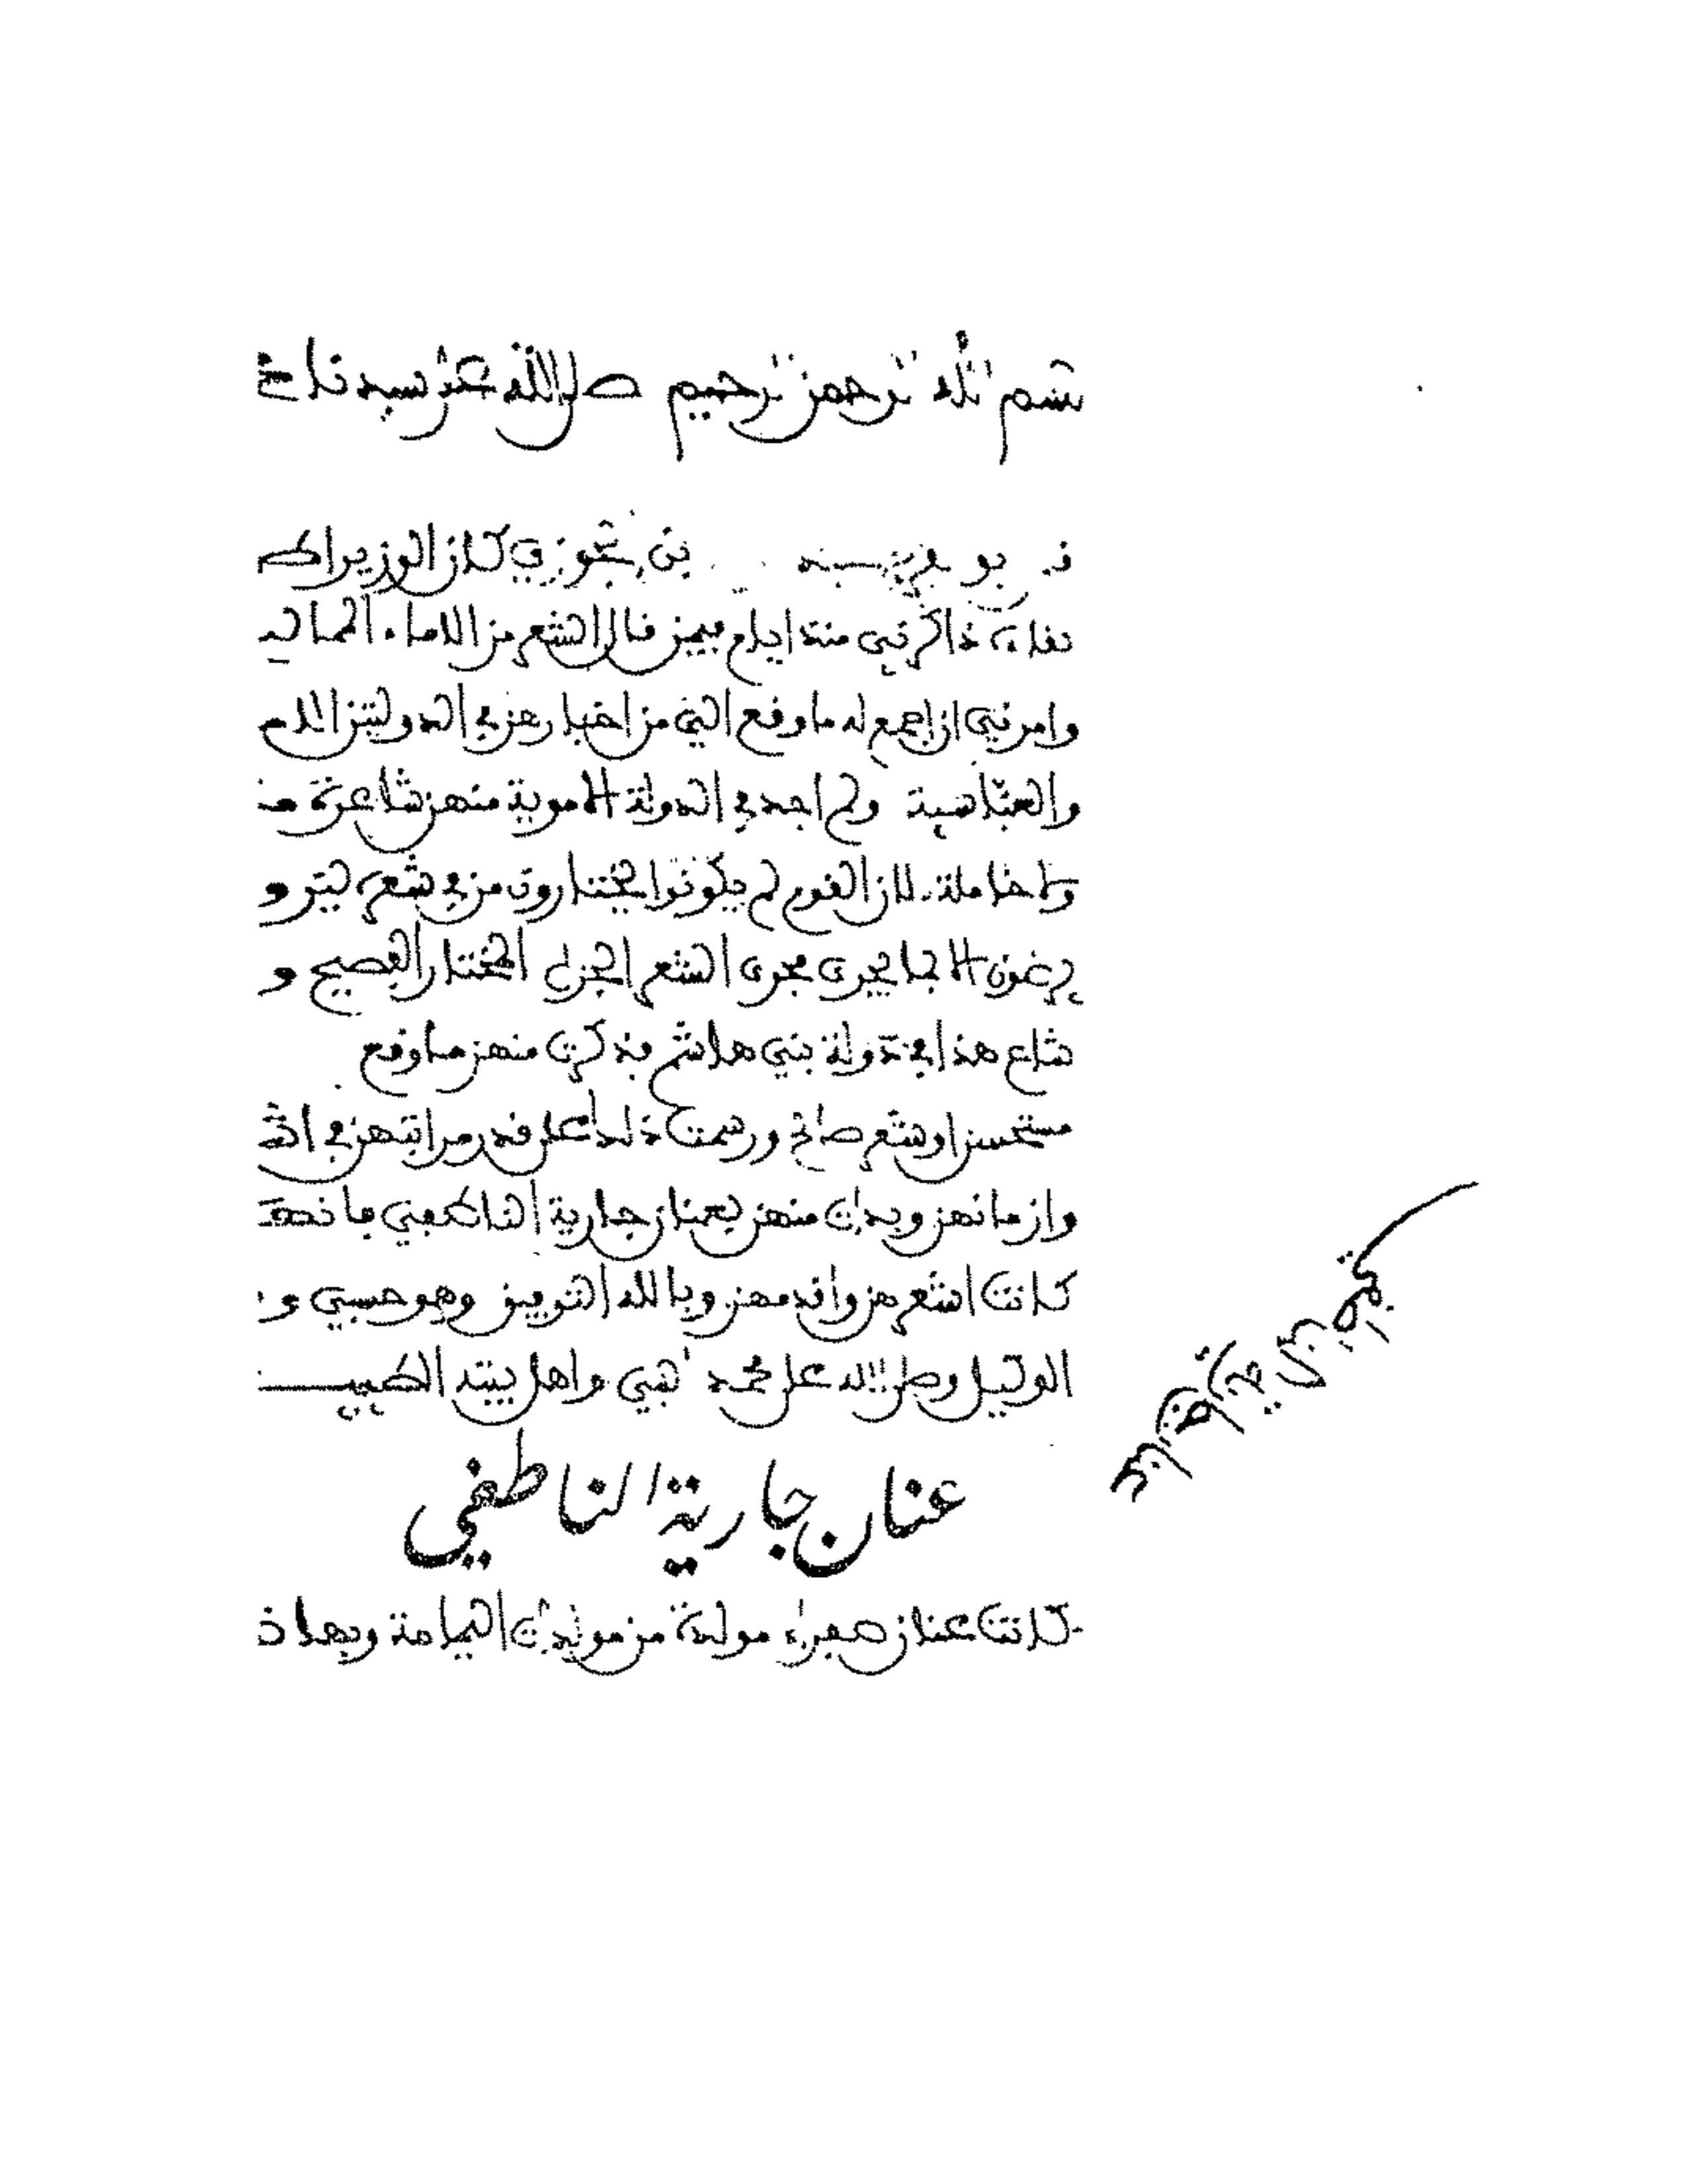 بسم الله الرحمن الرحيم صلى الله على سيدنا
بن الجوزي كان الوزير
ذاكرني منذ ايام فيمن قال الشعر من الاماء المماليك
وامرني ان اجمع له ما وقع الي من اخبارهن في الدولتين الام
والعباسية ولم اجد في الدولة الاموية منهن شاعرة مذ
ولا خاملة لان القوم لم يكونوا يختارون من في شعره لين و
يرضون الا بما يجري مجرى الشعر الجزل المختار الفصيح و
شاع هذا في دولة بني هاشم فذكرت منهن ما وقع
مستحسن او شعر صالح ورسمت ذلك على قدر مراتبهن في الشـ
وازمانهن وبدات منهن بعنان جارية الناطفي فانها
كانت اشعرهن واقدمهن وبالله التوفيق وهو حسبي و
الوكيل وصلى الله على محمد النبي واهل بيته الطيبيـ
عنان جارية الناطفي
عنان جارية الناطفي
كانت عنان صفراء مولدة من مولدات اليمامة وبها